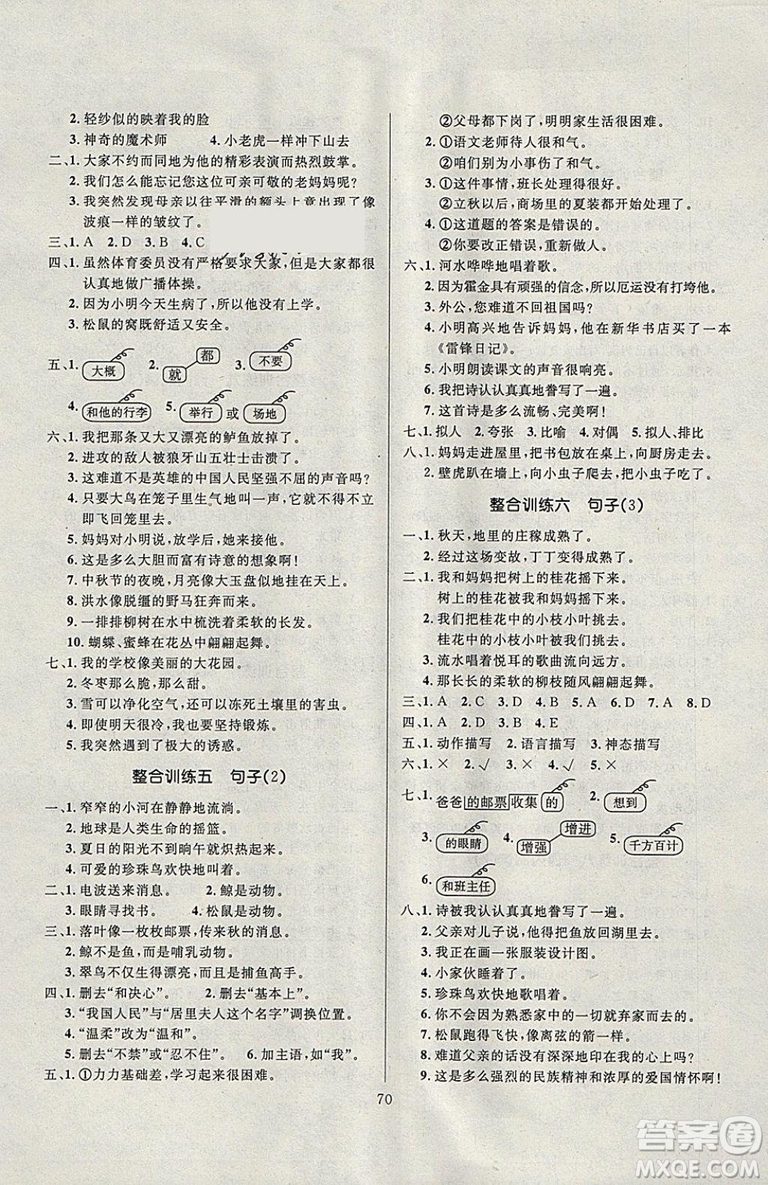 2. 轻纱似的映着我的脸
3. 神奇的魔术师 4. 小老虎一样冲下山去
二、1. 大家不约而同地为他的精彩表演而热烈鼓掌。
2. 我们怎么能忘记您这位可亲可敬的老妈妈呢?
3. 我突然发现母亲以往平滑的额头上竟出现了像
波痕一样的皱纹了。
三、1. A 2. D 3. B 4. C
四、1. 虽然体育委员没有严格要求大家,但是大家都很
认真地做广播体操。
2. 因为小明今天生病了,所以他没有上学。
3. 松鼠的窝既舒适又安全。
五、1. 大概 2. 就 都 3. 不要
4. 和他的行李 5. 举行 或 场地
六、1. 我把那条又大又漂亮的鲈鱼放掉了。
2. 进攻的敌人被狼牙山五壮士击溃了。
3. 这难道不是英雄的中国人民坚强不屈的声音吗?
4. 只要大鸟在笼子里生气地叫一声,它就不得不立
即飞回笼里来。
5. 妈妈对小明说,放学后,她来接他。
6. 这是多么大胆而富有诗意的想象啊!
7. 中秋节的夜晚,月亮像大玉盘似地挂在天上。
8. 洪水像脱缰的野马狂奔而来。
9. 一排排柳树在水中梳洗着柔软的长发。
10. 蝴蝶、蜜蜂在花丛中翩翩起舞。
七、1. 我的学校像美丽的大花园。
2. 冬枣那么脆,那么甜。
3. 雪可以净化空气,还可以冻死土壤里的害虫。
4. 即使明天很冷,我也要坚持锻炼。
5. 我突然遇到了极大的诱惑。
整合训练五 句子(2)
一、1. 窄窄的小河在静静地流淌。
2. 地球是人类生命的摇篮。
3. 夏日的阳光不到晌午就炽热起来。
4. 可爱的珍珠鸟欢快地叫着。
二、1. 电波送来消息。 2. 鲸是动物。
3. 眼睛寻找书。 4. 松鼠是动物。
三、1. 落叶像一枚枚邮票,传来秋的消息。
2. 鲸不是鱼,而是哺乳动物。
3. 翠鸟不仅生得漂亮,而且还是捕鱼高手。
四、1. 删去“和决心”。 2. 删去“基本上”。
3. “我国人民”与“居里夫人这个名字”调换位置。
4. “温柔”改为“温和”。
5. 删去“不禁”或“忍不住”。 6. 加主语,如“我”。
五、1. ①力力基础差,学习起来很困难。
②父母都下岗了,明明家生活很困难。
2. ①语文老师待人很和气。
②咱们别为小事伤了和气。
3. ①这件事情,班长处理得很好。
②立秋以后,商场里的夏装都在处理。
4. ①这道题的答案是错误的。
②你要改正错误,重新做人。
六、1. 河水哗哗地唱着歌。
2. 因为霍金具有顽强的信念,所以厄运没有打垮他。
3. 外公,您难道不回祖国吗?
4. 小明高兴地告诉妈妈,他在新华书店买了一本
《雷锋日记》。
5. 小明朗读课文的声音很响亮。
6. 我把诗认认真真地誊写了一遍。
7. 这首诗是多么流畅、完美啊!
七、1. 拟人 2. 夸张 3. 比喻 4. 对偶 5. 拟人、排比
八、1. 妈妈走进屋里,把书包放在桌上,向厨房走去。
2. 壁虎趴在墙上,向小虫子爬去,把小虫子吃了。
整合训练六 句子(3)
一、1. 秋天,地里的庄稼成熟了。
2. 经过这场变故,丁丁变得成熟了。
二、1. 我和妈妈把树上的桂花摇下来。
树上的桂花被我和妈妈摇下来。
2. 我们把桂花中的小枝小叶挑去。
桂花中的小枝小叶被我们挑去。
3. 流水唱着悦耳的歌曲流向远方。
4. 那长长的柔软的柳枝随风翩翩起舞。
三、1. A 2. C 3. D 4. C 5. D 6. C 7. A 8. D
四、1. A 2. D 3. B 4. E
五、1. 动作描写 2. 语言描写 3. 神态描写
六、1. × 2. √ 3. × 4. √
七、1. 爸爸的邮票收集的 2. 想到
3. 的眼睛 4. 增强 增进 5. 千方百计
6. 和班主任
八、1. 诗被我认认真真地誊写了一遍。
2. 父亲对儿子说,他得把鱼放回湖里去。
3. 我正在画一张服装设计图。
4. 小家伙睡着了。
5. 珍珠鸟欢快地歌唱着。
6. 你不会因为熟悉家中的一切就弃家而去的。
7. 松鼠跑得飞快,像离弦的箭一样。
8. 难道父亲的话没有深深地印在我的心上吗?
9. 这是多么强烈的民族精神和浓厚的爱国情怀啊!
70
答案圈
MXQE.COM